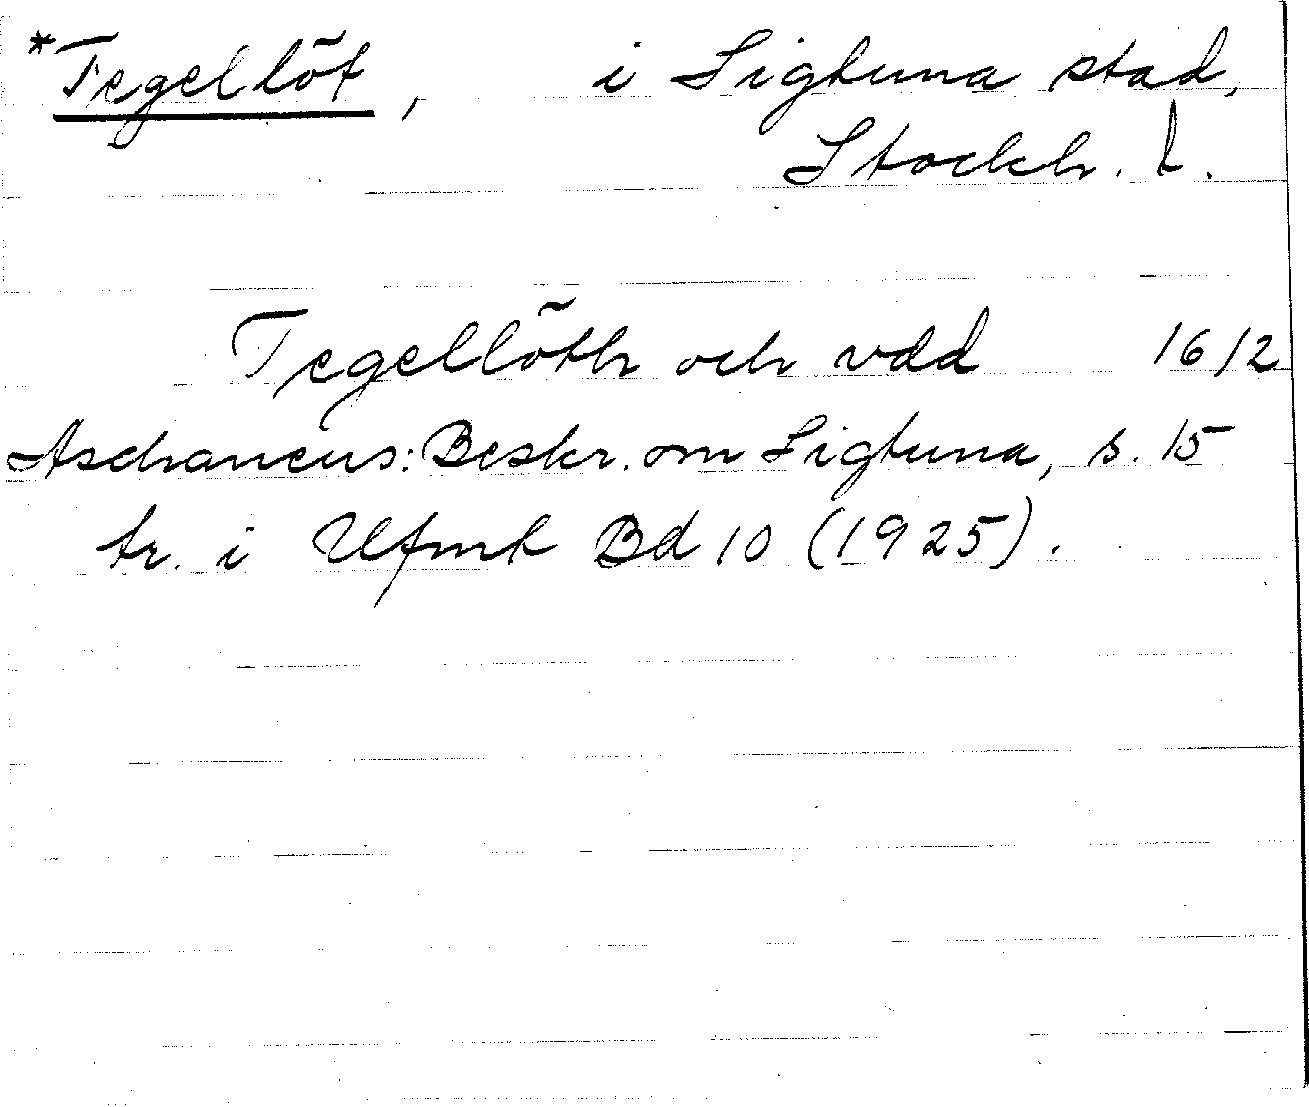 *Tegellöt, i Sigtuna stad,
Stockh. l.
Tegellöth och vdd 1612
Aschaneus: Beskr. om Sigtuna, s. 15
tr. i Ufmt Bd 10 (1925).